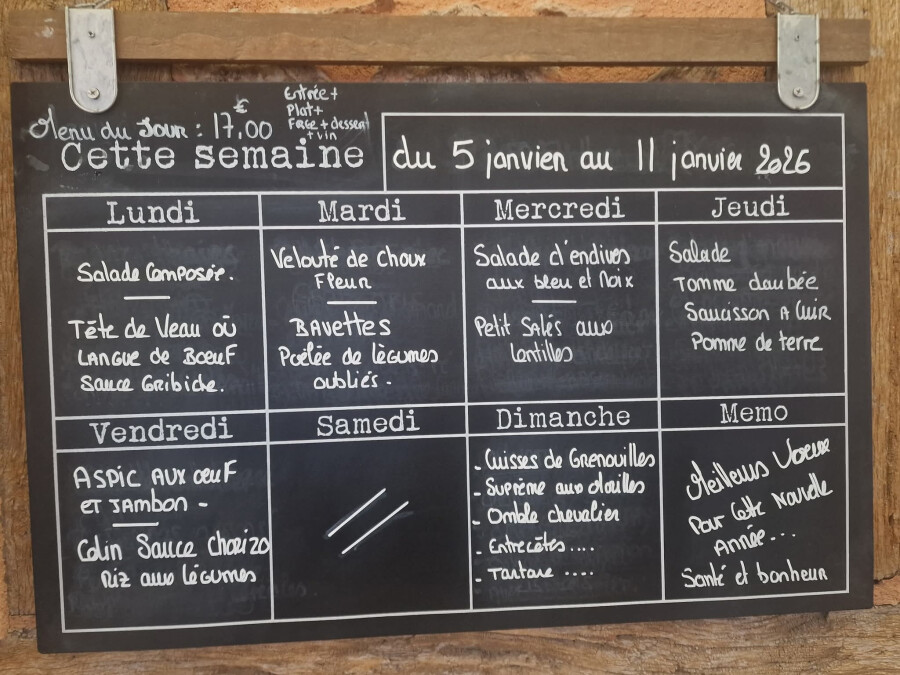 Menu du Jour : 17,00 €
Entrée +
Plat +
FROE + dessert
+ vin
Cette semaine
du 5 janvien au 11 janvier 2026
Lundi
Salade Composée.
Tête de Veau où
LANGUE de BŒUF
Sauce Gribiche.
Mardi
Velouté de choux
Fleur
BAVETTES
Poêlée de légumes
oubliés.
Mercredi
Salade d'endives
aux bleu et Noix
Petit Salés aux
lentilles
Jeudi
Salade
Tomme daubée
Saucisson A Cuir
Pomme de terre
Vendredi
ASPIC AUX ŒUF
ET JAMBON -
Colin Sauce Chorizo
Riz aux légumes
Samedi
Dimanche
- Cuisses de Grenouilles
- Suprême aux
- Omble chevalier
- Entrecôtes ....
- Tartare ....
Memo
Meilleurs Voeux
Pour Cette Nouvelle
Année...
Santé et bonheur